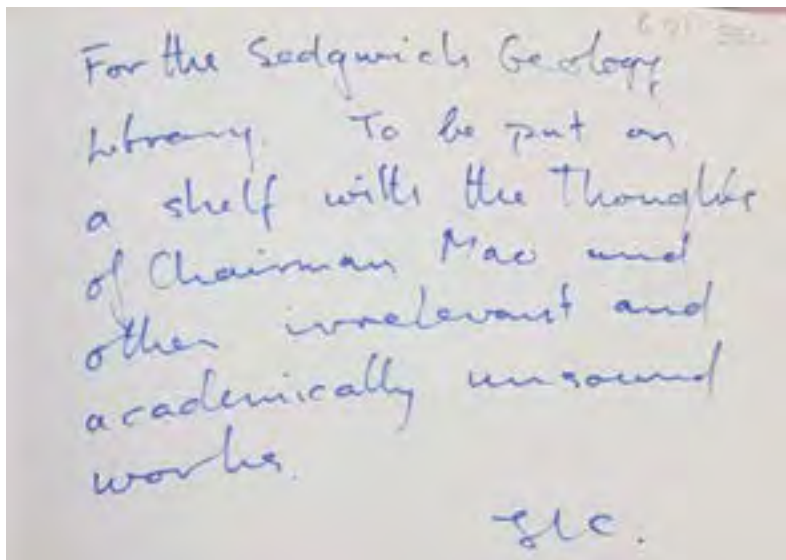 For the Sedgwick Geology
Library. To be put on
a shelf with the Thoughts
of Chairman Mao and
other irrelevant and
academically unsound
works.